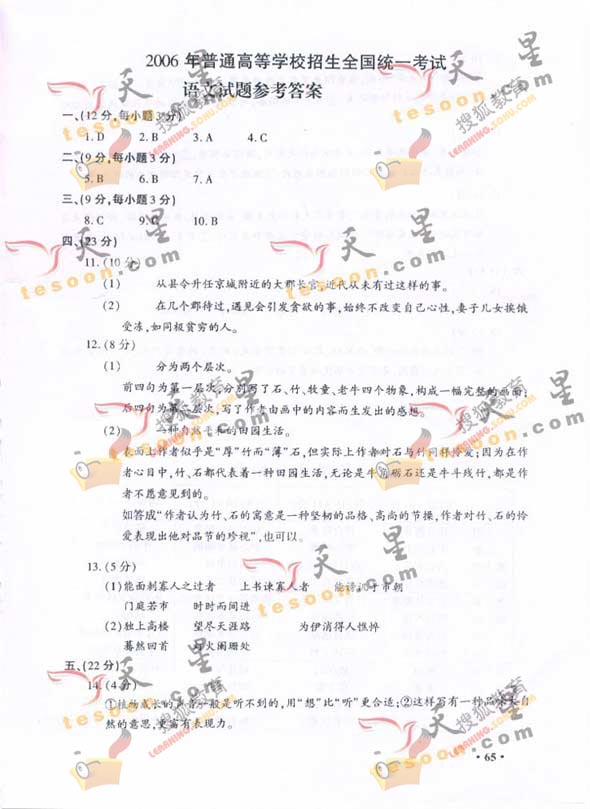 2006 年普通高等学校招生全国统一考试
语文试题参考答案
一、(12 分,每小题 3 分)
1. D 2. B 3. A 4. C
二、(9 分,每小题 3 分)
5. B 6. B 7. A
三、(9 分,每小题 3 分)
8. C 9. D 10. B
四、(23 分)
11. (10 分)
(1) 从县令升任京城附近的大郡长官,近代从未有过这样的事。
(2) 在几个郡待过,遇见会引发贪欲的事,始终不改变自己心性,妻子儿女挨饿
受冻,如同极贫穷的人。
12. (8 分)
(1) 分为两个层次。
前四句为第一层次,分别写了石、竹、牧童、老牛四个物象,构成一幅完整的画面;
后四句为第二层次,写了作者由画中的内容而生发出的感想。
(2) 一种自然平和的田园生活。
表面上作者似乎是“厚”竹而“薄”石,但实际上作者对石与竹同样怜爱;因为在作
者心目中,竹、石都代表着一种田园生活,无论是牛砺石还是牛斗残竹,都是作
者不愿意见到的。
如答成“作者认为竹、石的寓意是一种坚韧的品格、高尚的节操,作者对竹、石的怜
爱表现出他对品节的珍视”,也可以。
13. (5 分)
(1)能面刺寡人之过者 上书谏寡人者 能谤讥于市朝
门庭若市 时时而间进
(2)独上高楼 望尽天涯路 为伊消得人憔悴
蓦然回首 灯火阑珊处
五、(22 分)
14. (4 分)
①植物成长的声音一般是听不到的,用“想”比“听”更合适;②这样写有一种品味大自
然的意思,更富有表现力。
· 65 ·
天星
tesoon.com
搜狐教育
LEARNING.SOHU.COM